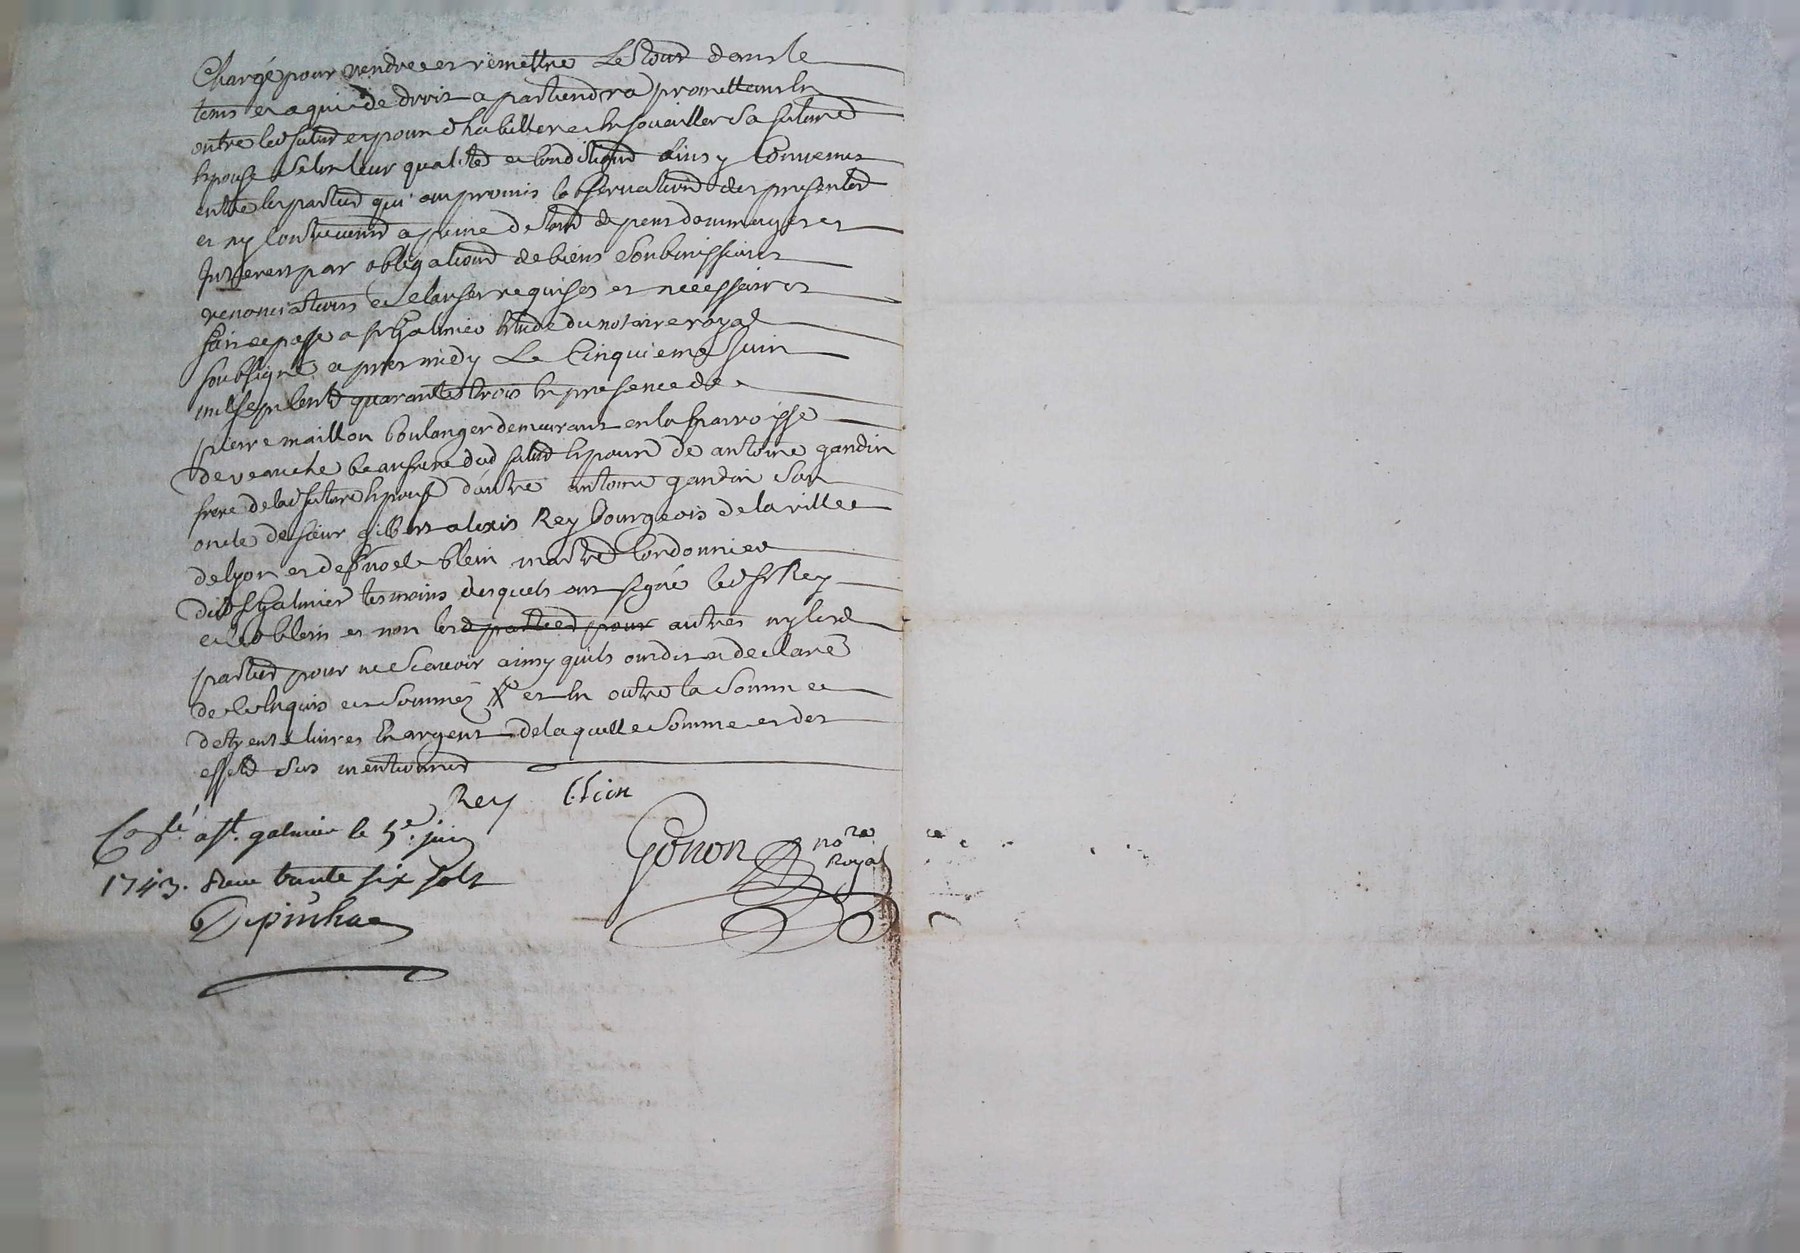 Chargé pour rendre et remettre Le tout dans le
tems et a qui de droit apartiendra promettant en
outre led futur epoux d'habiller et enjouailler sa future
epouse selon leur qualité et condition ainsy convenus
entre les parties qui ont promis l'observation des presentes
et ny contrevenir a peine de tous depens dommages et
Interets par obligations de biens soubmissions
renonciations et clauses requises et necessaires
fait et passé a St Galmier Etude du notaire royal
soubsigné apres midy Le Cinquieme Juin
mil sept cents quarante trois En presence de
pierre maillon boulanger demeurant en la parroisse
de veauche beaufrere dud futur Epoux de antoine gandin
frere de lad future Epouse d'autre antoine gandin son
oncle de sieur gilbert alexis Rey bourgeois de la ville
de lyon et de noel blein maitre Cordonnier
dud St Galmier temoins desquels ont signé led Sr Rey
et led blein et non les parties pour autres ny lesd
parties pour ne scavoir ainsy quils ont dit et declaré
de ce Enquis et sommés X et En outre la somme
de trente livres En argent de laquelle somme et des
effets sus mentionnés
Rey blein
Conlé a St. galmier le 5e. juin
1743. Reçu trente six sols
Gonon nore
Royal